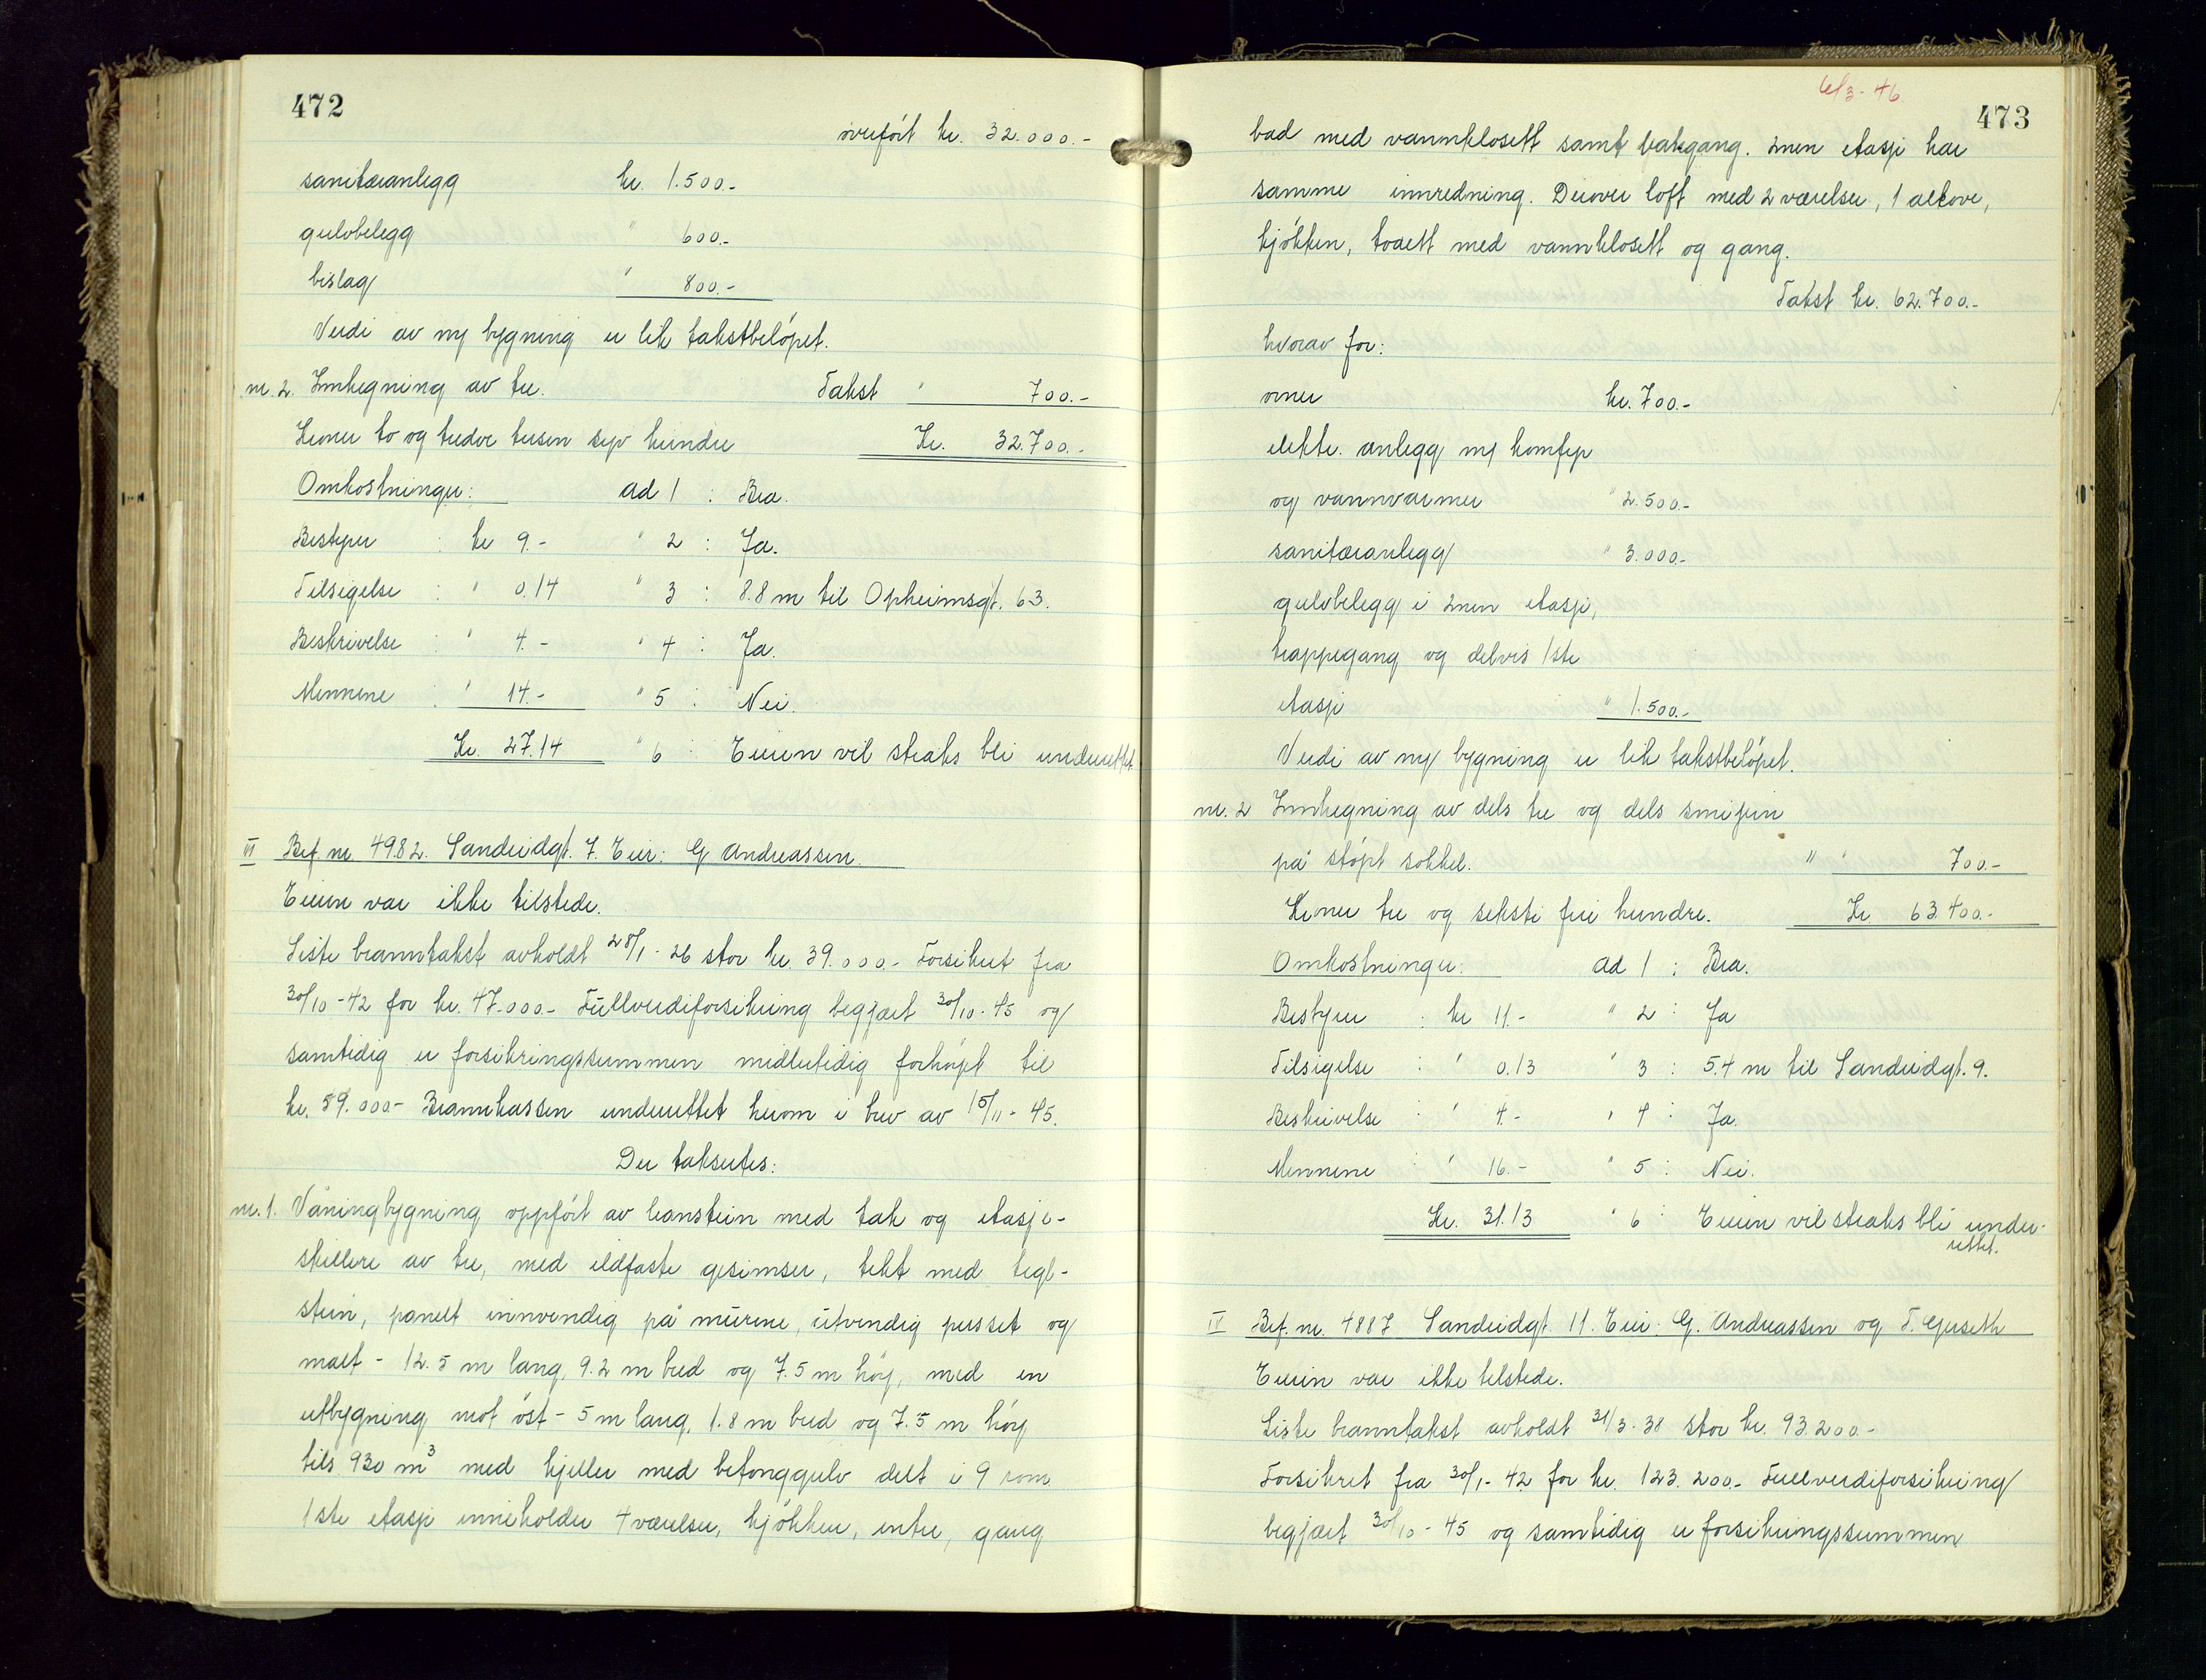 472
overført kr. 32.000.-
sanitæranlegg kr. 1.500.-
gulvbelegg " 600.-
bislag " 800.-
Verdi av ny bygning er lik takstbeløpet.
nr. 2. Innhegning av tre. Takst " 700.-
Kroner to og tredve tusen syv hundre Kr. 32.700.-
Omkostninger: ad 1 : Bra.
Bestyrer : kr 9.- " 2 : Ja.
Tilsigelse : " 0.14 " 3 : 8.8 m til Opheimsgt. 63.
Beskrivelse : " 4.- " 4 : Ja.
Mennene : " 14.- " 5 : Nei.
Kr. 27.14 " 6 : Eieren vil straks bli underrettet
III Bef. nr 4982. Sandeidgt. 7. Eier: G Andreassen.
Eieren var ikke tilstede.
Siste branntakst avholdt 28/1-26 stor kr. 39.000.- Forsikret fra
30/10-42 for kr. 47.000.- Fullverdiforsikring begjært 30/10-45 og
samtidig er forsikringssummen midlertidig forhøyet til
kr. 59.000.- Brannkassen underrettet herom i brev av 15/11-45.
Der takseres:
nr. 1. Våningbygning oppført av leanstein med tak og etasje-
skillere av tre, med ildfaste gesimser, tekt med tegl-
stein, panelt innvendig på murene, utvendig pusset og
malt - 12.5 m lang, 9.2 m bred og 7.5 m høy, med en
utbygning mot øst - 5 m lang, 1.8 m bred og 7.5 m høy
tils. 930 m³ med kjeller med betonggulv delt i 9 rom
1ste etasje inneholder 4 værelser, kjøkken, entre, gang
6/3-46.
473
bad med vannklosett samt bakgang. 2nen etasje har
samme innredning. Derover loft med 2 værelser, 1 alkove,
kjøkken, toalett med vannklosett og gang.
Takst kr. 62.700.-
hvorav for:
ovner kr. 700.-
elektr. anlegg m/ komfyr
og vannvarmer " 2.500.-
sanitæranlegg " 3.000.-
gulvbelegg i 2nen etasje,
trappegang og delvis 1ste
etasje " 1.500.-
Verdi av ny bygning er lik takstbeløpet.
nr. 2 Innhegning av dels tre og dels smijern
på støpt sokkel. " " 700.-
Kroner tre og seksti fire hundre. Kr. 63.400.-
Omkostninger: ad 1 : Bra.
Bestyrer : kr 11.- " 2 : Ja
Tilsigelse : " 0.13 " 3 : 5.4 m til Sandeidgt. 9.
Beskrivelse : " 4.- " 4 : Ja.
Mennene : " 16.- " 5 : Nei.
Kr. 31.13 " 6 : Eieren vil straks bli under-
rettet.
IV Bef. nr. 4887 Sandeidgt. 11. Eier: G. Andreassen og T. Gjerseth
Eieren var ikke tilstede.
Siste branntakst avholdt 31/3-38 stor kr. 93.200.-
Forsikret fra 30/1-42 for kr. 123.200.- Fullverdiforsikring
begjært 30/10-45 og samtidig er forsikringssummen